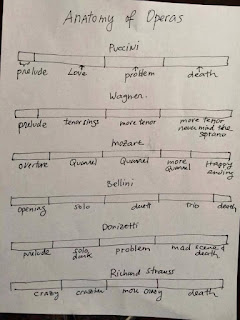 Anatomy of Operas
Puccini
prelude Love problem death
Wagner.
prelude tenor sings more tenor more tenor
never mind the
soprano
mozart
overture Quarrel Quarrel more Happy
Quarrel ending
Bellini
opening solo duett trio death
Donizetti
prelude solo, problem mad scene &
duet death
Richard Strauss
crazy crazier more crazy death